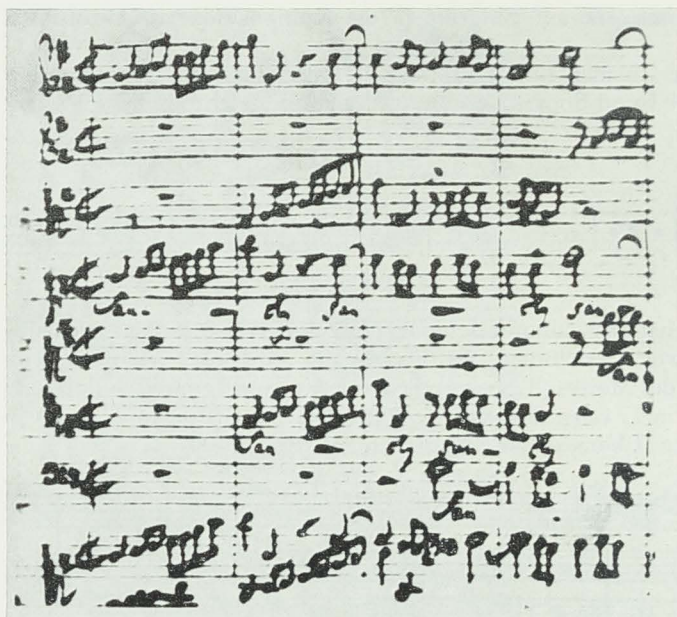 San- - ctus san - ctus san-
San
San - ctus san- ctus
San